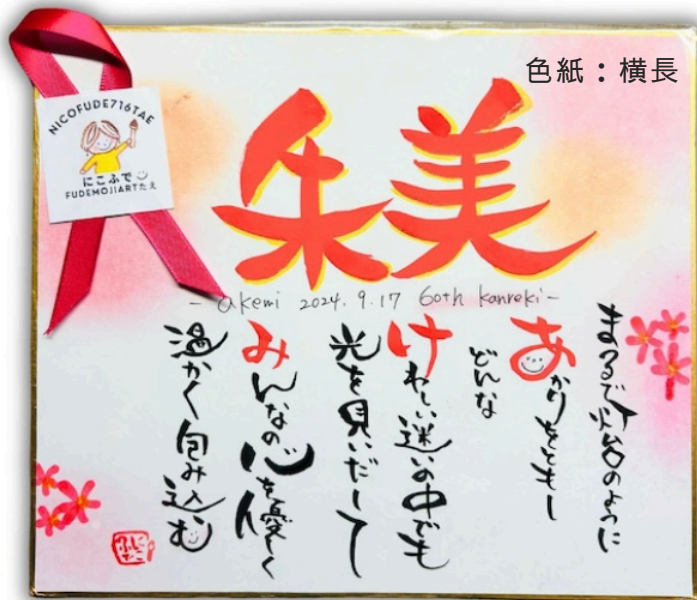 色紙：横長
NICOFUDE716TAE
にこふで
FUDEMOJIARTたえ
朱美
- akemi 2024.9.17 60th kanreki -
まるで灯台のように
あかりをともし
どんな
けわしい迷いの中でも
光を見いだして
みんなの心を優しく
温かく包み込む
にこふで